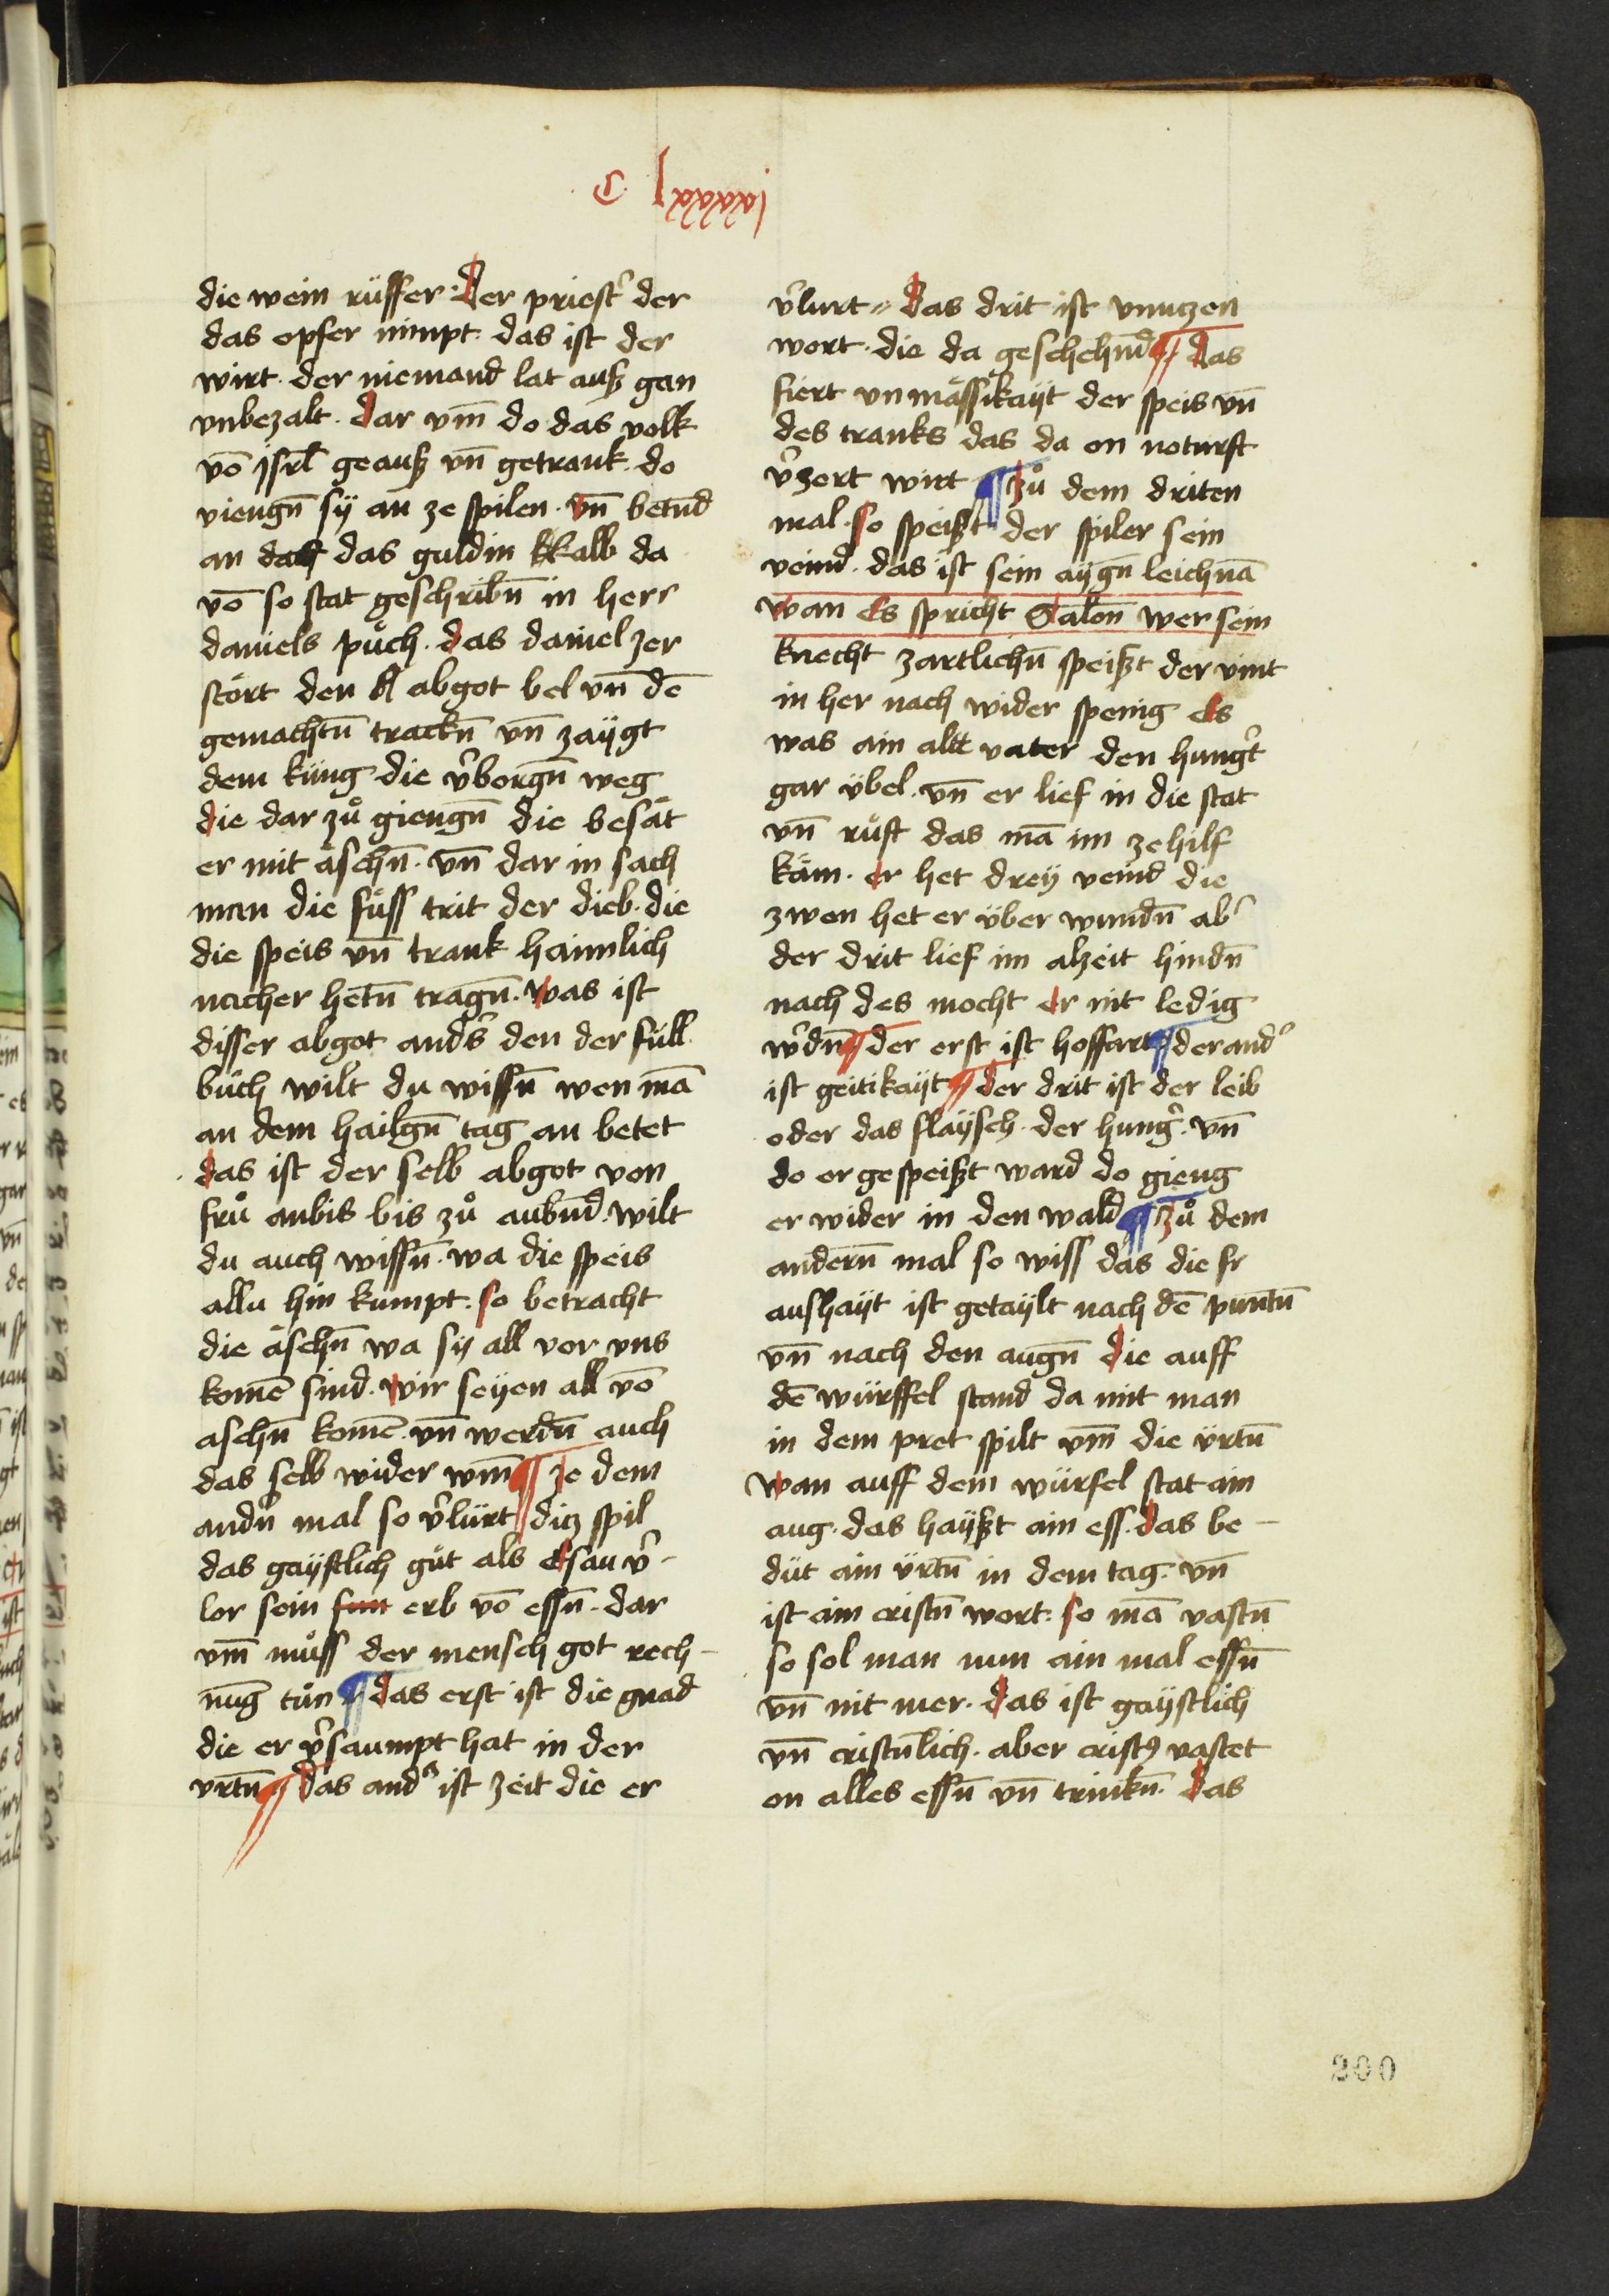 C lxxxxj
die wein rüffer. Der priest᷑ der
das opfer nimpt. das ist der
wirt. der niemand lat auß gan
vnbezalt. dar vm̄ do das volk
vō jsrl̄ geauß vn̄ getrank. do
viengn̄ sÿ an ze spilen. vn̄ betnd̄
an das guldin kalb da
vō so stat geschribn̄ in herr
daniels pu̇ch. das daniel zer
stört den abgot bel vn̄ dē
gemachtn̄ trackn̄ vn̄ zaÿgt
dem küng die v᷑borgn̄ weg
die dar zů giengn̄ die besät
er mit äschn̄. vn̄ dar in sach
man die füss trit der dieb. die
die speis vn̄ trank haimlich
nacher hetn̄ tragn̄. was ist
disser abgot and᷑s den der füll
buch wilt du wissn̄ wen mā
an dem hailgn̄ tag an betet
das ist der selb abgot von
frů anbis bis zů aubnd̄. wilt
du auch wissn̄. wa die speis
allu hin kumpt. so betracht
die äschn̄ wa sÿ all vor vns
komē sind. wir seÿen all vō
aschn̄ komē. vn̄ werdn̄ auch
das selb wider wm̄ ¶ ze dem
andn̄ mal so v᷑lürt ditz spil
das gaÿstlich gůt als Esau v᷑-
lor sein erb vō essn̄. dar
vm̄ můss der mensch got rech-
nuḡ tůn ¶ das erst ist die gnad
die er v᷑saumpt hat in der
vrtn̄ ¶ das and᷑ ist zeit die er
v᷑lurt // Das drit ist vnnutzen
wort. die da geschehnd̄ ¶ das
fiert vnmässikaÿt der speis vn̄
des tranks das da on noturft
v᷑zert wirt ¶ zů dem driten
mal. so speißt der spiler sein
veind. das ist sein aÿgn̄ leichnā
wan Es spricht Salon̄ wer sein
knecht zartlichn̄ speißt der vint
in her nach wider spenig Es
was ain alt vater den hung᷑t
gar übel. vn̄ er lief in die stat
vn̄ růft das mā im ze hilf
käm. er het dreÿ veind die
zwen het er über wundn̄ ab᷑
der drit lief im alzeit hindn̄
nach des mocht er nit ledig
w᷑dn̄ ¶ der erst ist hoffart ¶ der and᷑
ist geitikaÿt ¶ der drit ist der leib
oder das flaÿsch. der hung᷑. vn̄
do er gespeißt ward do gieng
er wider in den wald ¶ zů dem
andern̄ mal so wiss das die fr
aushaÿt ist getaÿlt nach dē puntn̄
vn̄ nach den augn̄ die auff
dē würffel stand da mit man
in dem pret spilt vm̄ die ürtn̄
wan auff dem würfel stat ain
aug. das haÿßt ain ess. das be-
düt ain ürtn̄ in dem tag. vn̄
ist ain cristn̄ wort. so mā vastn̄
so sol man nun ain mal essn̄
vn̄ nit mer. das ist gaÿstlich
vn̄ cristn̄lich. aber cristꝰ vastet
on alles essn̄ vn̄ trinkn̄. das
200